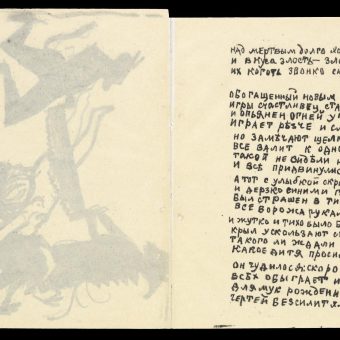 над мертвым долго
и вкуса злость — зло
их коготь звонко

обогащенный новым
игры счастливец
и опьянен огней
играет резче и
но замечают щел
все залит к одно
такой не видели
и все придвинулис

а тот с улыбкой скро
и дерзко синими
был страшен в ти
все ворожа рукам
и жутко и тихо было
крыл ускользают
такого ли ждали
какое дитя проси

он чудилось скоро
всѣх обыграет и
для мук рожденн
чертей безсилит